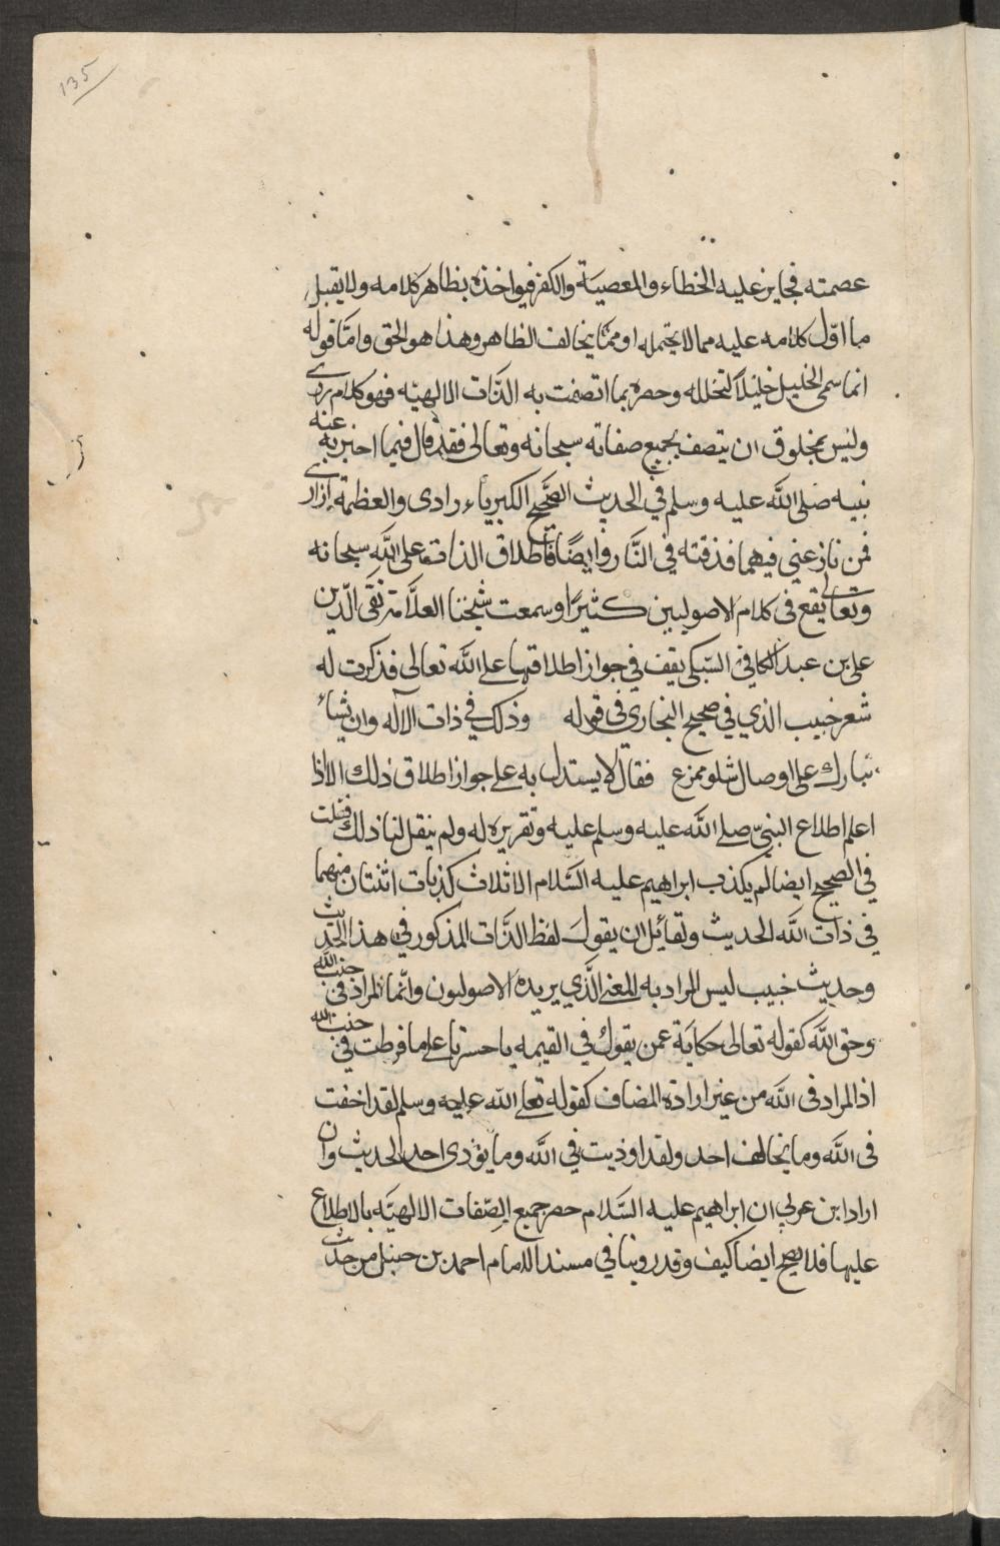 135
عصمته فجايز عليه الخطاء والمعصية والكفر فيواخذه بظاهر كلامه ولا يقبل
ما اوّل كلامه عليه مما لا يحتمله او ممّا يخالف الظاهر وهذا هو الحق وامّا قوله
انما سمى الخليل خليلاً لتخلله وحصره بما اتصفت به الذّات الالهيّه فهو كلام ردى
وليس بمخلوق ان يتصف بجميع صفاته سبحانه وتعالى فقد قال فيما اخبر به عنه
نبيه صلى الله عليه وسلم في الحديث الصّحيح الكبرياء ردادى والعظمة ازارى
فمن نازعني فيهما قذفته في النّار وايضًا فاطلاق الذات على الله سبحانه
وتعالى يقع فى كلام الاصوليين كثيرًا وسمعت شيخنا العلّامة تقى الدّين
على بن عبد الكافي السّبكى يقف في جواز اطلاقها على الله تعالى فذكرت له
شعر خبيب الذي في صحيح البخارى فى قوله وذلك في ذات الاله وان يشاء
تبارك على اوصال شلو ممزع فقال لا يستدل به على جواز اطلاق ذلك الا اذا
اعلم اطلاع النبيّ صلى الله عليه وسلم عليه وتقريره له ولم ينقل لنا ذلك فقلت
في الصحيح ايضا لم يكذب ابراهيم عليه السّلام الا ثلاث كذبات اثنتان منهما
في ذات الله الحديث ولقائل ان يقول لفظ الذّات المذكور في هذا الحديث
وحديث خبيب ليس المراد به المعنى الّذي يريده الاصوليون وانّما المراد فى جنب الله
وحق الله كقوله تعالى حكاية عمن يقول في القيمه يا حسرتا على ما فرطت في جنب الله
اذ المراد فى الله من غير ارادة المضاف كقوله صلى الله عليه وسلم لقد اخفت
فى الله وما يخالف احد ولقد اوذيت في الله وما يؤذى احد الحديث وان
اراد ابن عربي ان ابراهيم عليه السّلام حصر جميع الصّفات الالهيّه بالاطلاع
عليها فلا يصح ايضا كيف وقد روينا في مسند الامام احمد بن حنبل من حديث